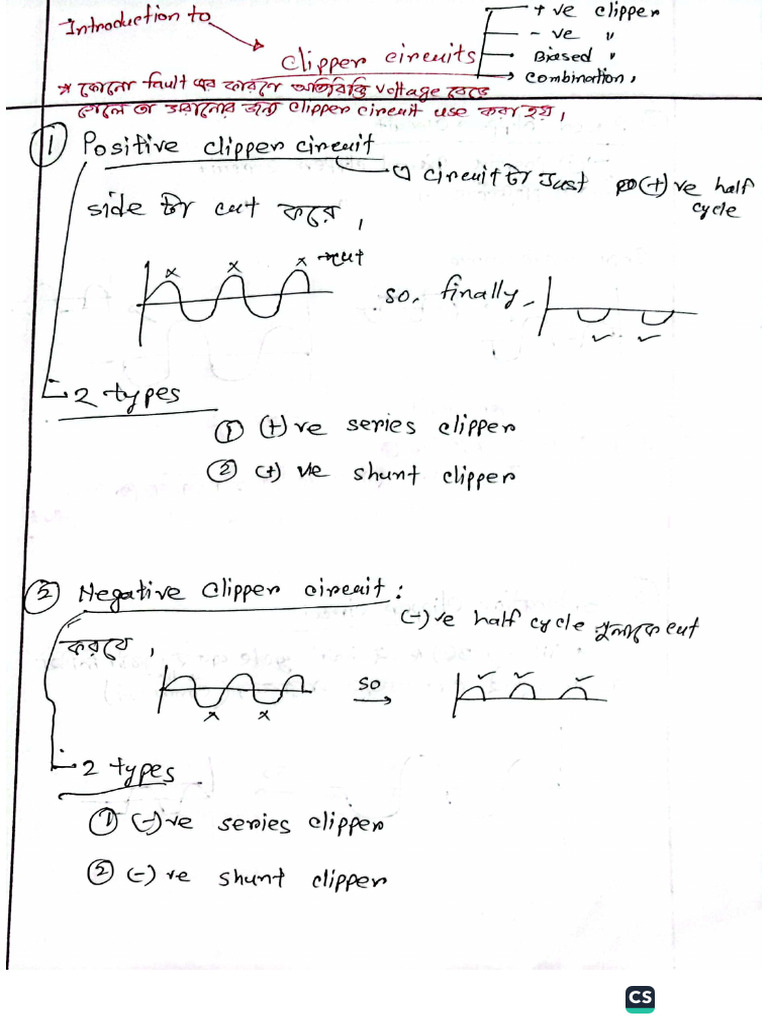 Introduction to
Clipper circuits
+ ve clipper
- ve "
Biased "
Combination,
* কোনো fault এর কারণে অতিরিক্ত voltage বেড়ে
গেলে তা কমানোর জন্য clipper circuit use করা হয়,
① Positive clipper circuit
circuit টা Just (+) ve half
cycle
side টা cut করে,
x x x cut
so, finally,
✓ ✓
2 types
① (+) ve series clipper
② (+) ve shunt clipper
② Negative Clipper circuit :
(-) ve half cycle গুলাকে cut
করবে,
✓ ✓ ✓
so
x x
2 types
① (-) ve series clipper
② (-) ve shunt clipper
CS